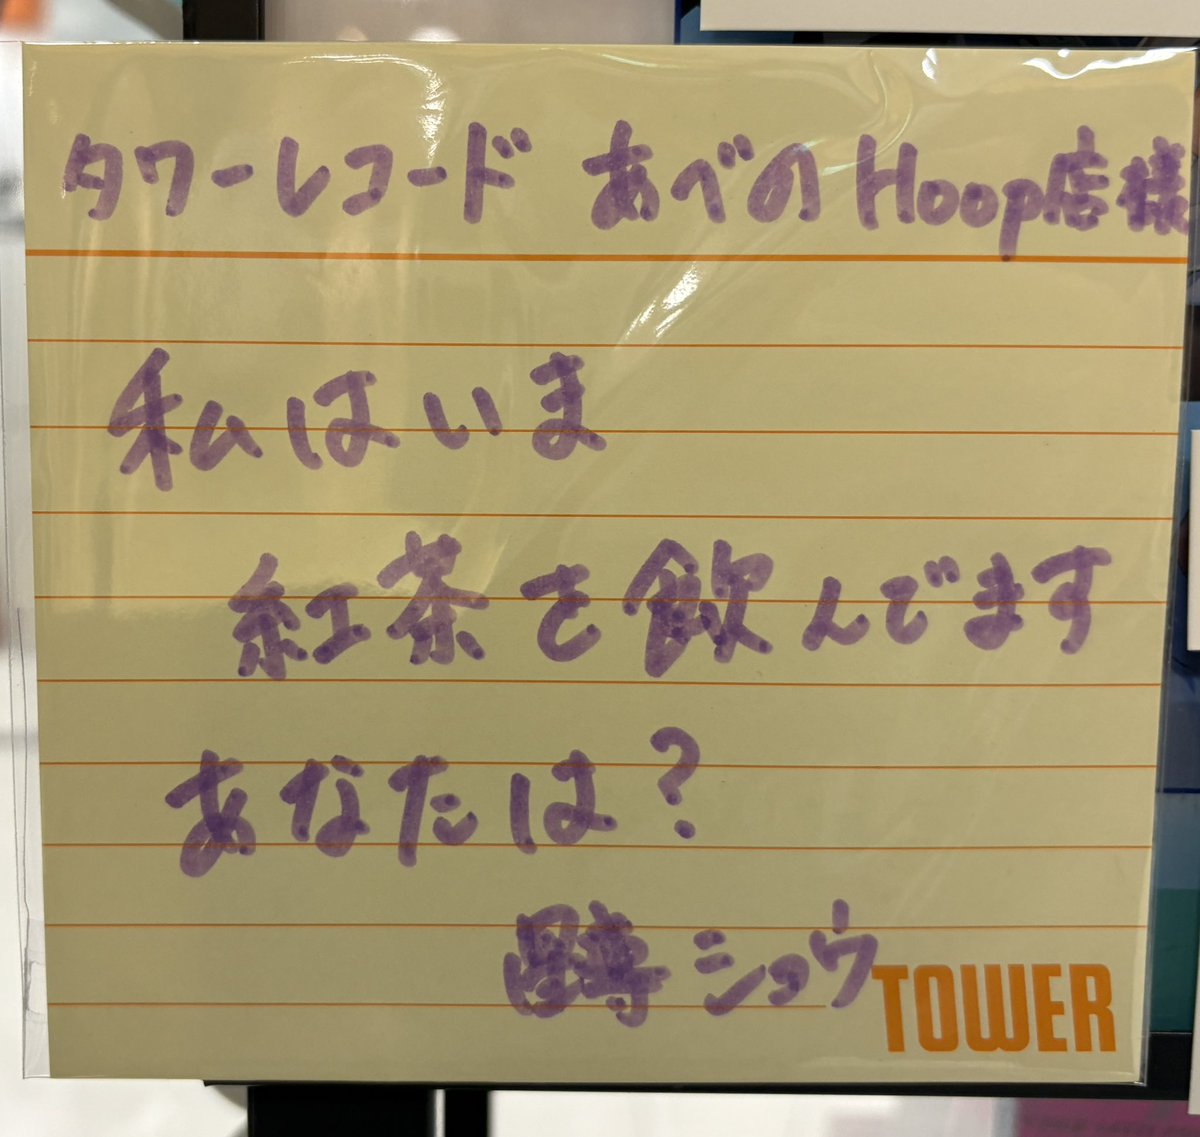 タワーレコード あべのHoop店様
私はいま
紅茶を飲んでます
あなたは?
ショウ
TOWER